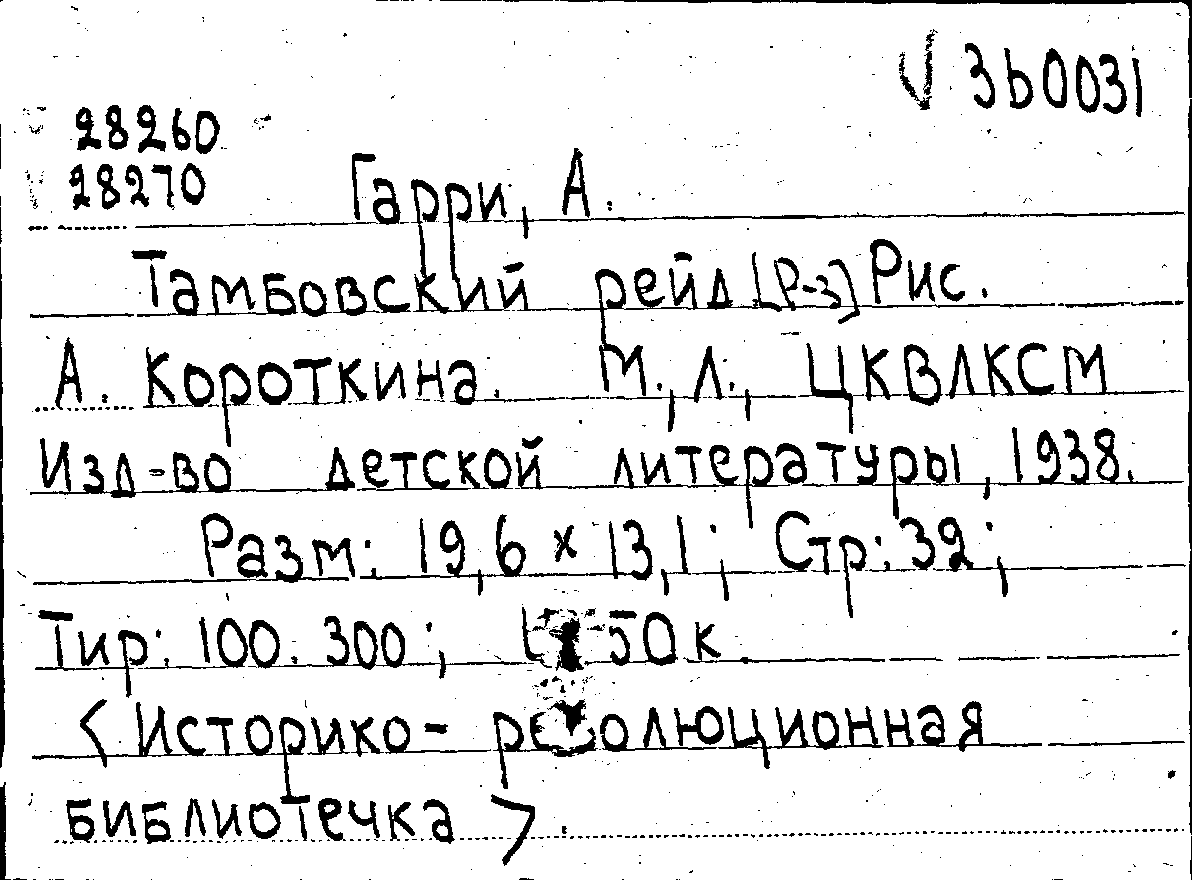 √ 3b0031
28260
28270
Гарри, А.
Тамбовский рейд [Р-з] Рис.
А. Короткина. М., Л., ЦКВЛКСМ
Изд-во детской литературы, 1938.
Разм: 19,6 x 13,1; Стр: 32;
Тир: 100. 300; 50к.
<Историко- революционная
библиотечка>.